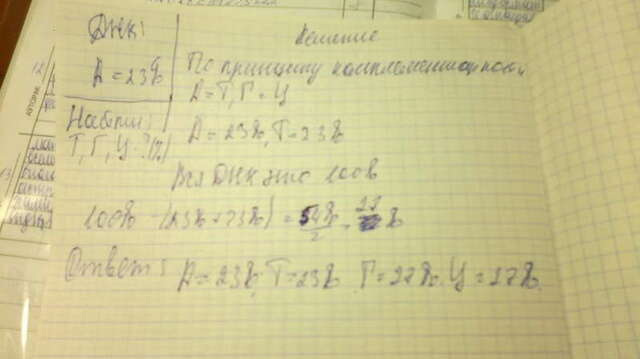 ДНК:
А = 23%
Найти:
Т, Г, Ц - ?(%)
Решение
По принципу комплементарности
А = Т, Г = Ц
А = 23%, Т = 23%
Вся ДНК это 100%
100% - (23% + 23%) = 54%/2 = 27%
Ответ: А = 23%, Т = 23% Г = 27%, Ц = 27%